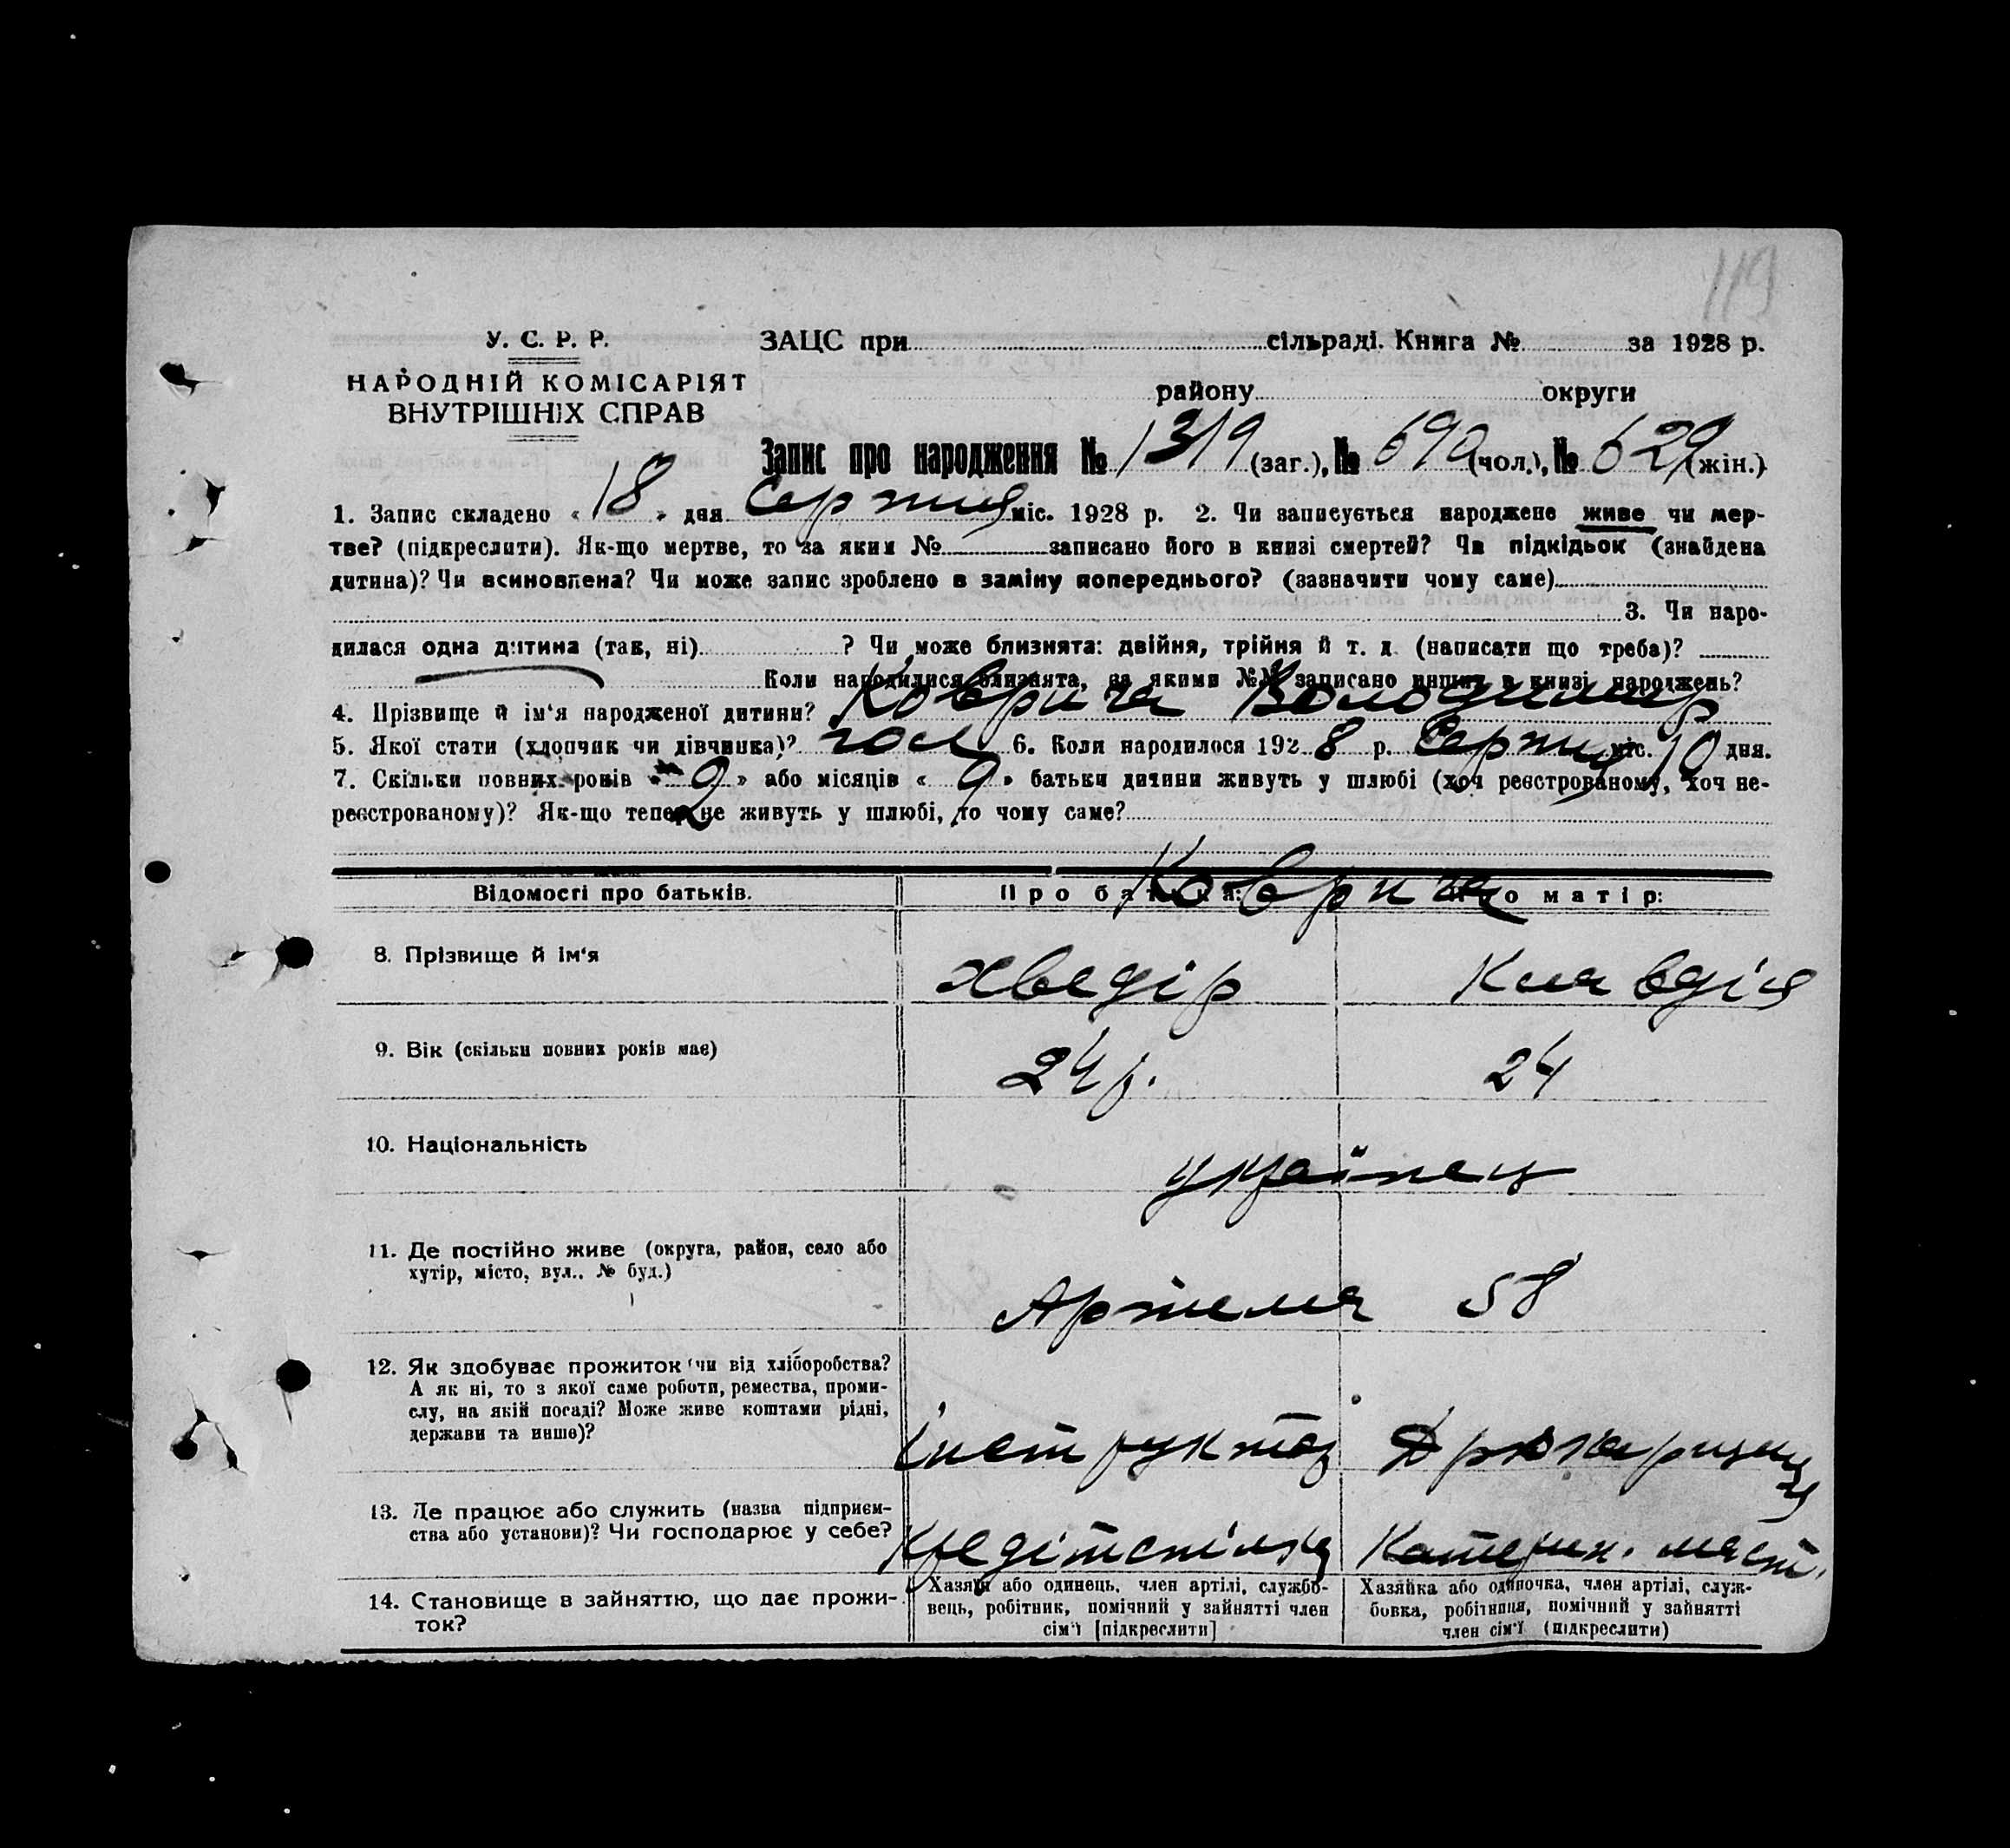 119
У. С. Р. Р.
НАРОДНІЙ КОМІСАРІЯТ
ВНУТРІШНІХ СПРАВ
ЗАЦС при сільраді. Книга № за 1928 р.
району округи
Запис про народження № 1319 (заг.), № 690 (чол.), № 629 (жін.)
1. Запис складено « 18 » дня Серпня міс. 1928 р. 2. Чи записується народжене живе чи мер-
тве? (підкреслити). Як-що мертве, то за яким № записано його в книзі смертей? Чи підкідьок (знайдена
дитина)? Чи всиновлена? Чи може запис зроблено в заміну попереднього? (зазначити чому саме)
3. Чи наро-
дилася одна дитина (так, ні) ? Чи може близнята: двійня, трійня й т. д. (написати що треба)?
Коли народилися близнята, за якими №№ записано инших в книзі народжень?
4. Прізвище й ім'я народженої дитини? Коврига Володимир
5. Якої стати (хлопчик чи дівчинка)? чол 6. Коли народилося 1928 р. Серпня міс. 10 дня.
7. Скільки повних років « 2 » або місяців « 9 » батьки дитини живуть у шлюбі (хоч реєстрованому, хоч не-
реєстрованому)? Як-що тепер не живуть у шлюбі, то чому саме?
Відомості про батьків. Про батька: Про матір:
Коврига
8. Прізвище й ім'я Хведір Клавдія
9. Вік (скільки повних років має) 24 р. 24
10. Національність українец
11. Де постійно живе (округа, район, село або
хутір, місто, вул.. № буд.)
Артема 58
12. Як здобуває прожиток чи від хліборобства?
А як ні, то з якої саме роботи, ремества, проми-
слу, на якій посаді? Може живе коштами рідні,
держави та инше)?
Інструктор
13. Де працює або служить (назва підприєм-
ства або установи)? Чи господарює у себе?
Кредітспілка Катерин.
14. Становище в зайняттю, що дає прожи-
ток?
Хазяїн або одинець, член артілі, службо-
вець, робітник, помічний у зайнятті член
сім'ї [підкреслити]
Хазяйка або одиночка, член артілі, служ-
бовка, робітниця, помічний у зайнятті
член сім'ї (підкреслити)